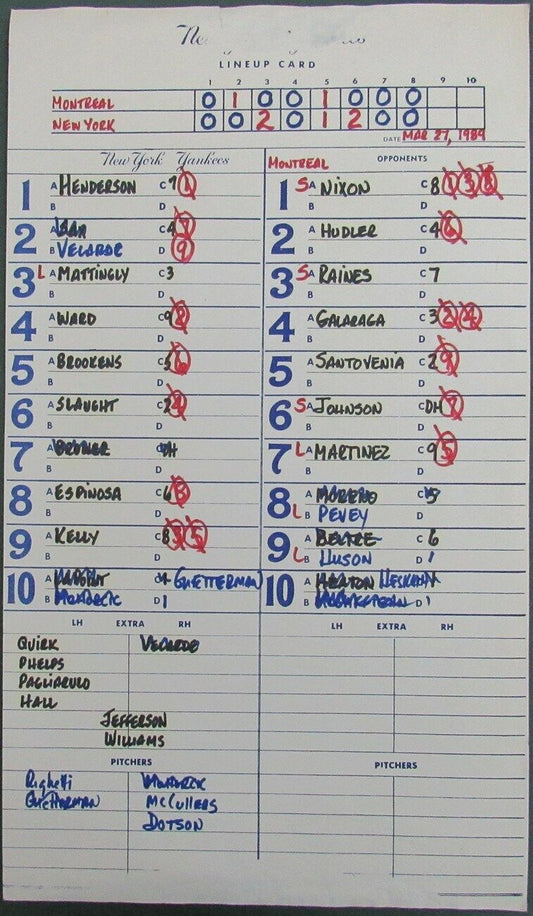 LINEUP CARD
1 2 3 4 5 6 7 8 9 10
MONTREAL 0 1 0 0 1 0 0 0
NEW YORK 0 0 2 0 1 2 0 0
DATE MAR 27, 1989
New York Yankees MONTREAL OPPONENTS
1 A HENDERSON C 7 1 1 S A NIXON C 8 1 3 8
B D B D
2 A C 4 7 2 A HUDLER C 4 6
B VELARDE D 9 B D
3 L A MATTINGLY C 3 3 S A RAINES C 7
B D B D
4 A WARD C 9 8 4 A GALARAGA C 3 2 4
B D B D
5 A BROOKENS C 5 6 5 A SANTOVENIA C 2 9
B D B D
6 A SLAUGHT C 2 4 6 S A JOHNSON C DH 7
B D B D
7 A C DH 7 L A MARTINEZ C 9 5
B D B D
8 A ESPINOSA C 6 3 8 A C 5
B D L B PEVEY D
9 A KELLY C 8 3 5 9 A BELTRE C 6
B D L B HUSON D 1
10 A C GUETTERMAN 10 A HEATON C
B D 1 B D 1
LH EXTRA RH LH EXTRA RH
QUIRK VELARDE
PHELPS
PAGLIARULO
HALL
JEFFERSON
WILLIAMS
PITCHERS PITCHERS
Righetti
GUETTERMAN McCullers
DOTSON